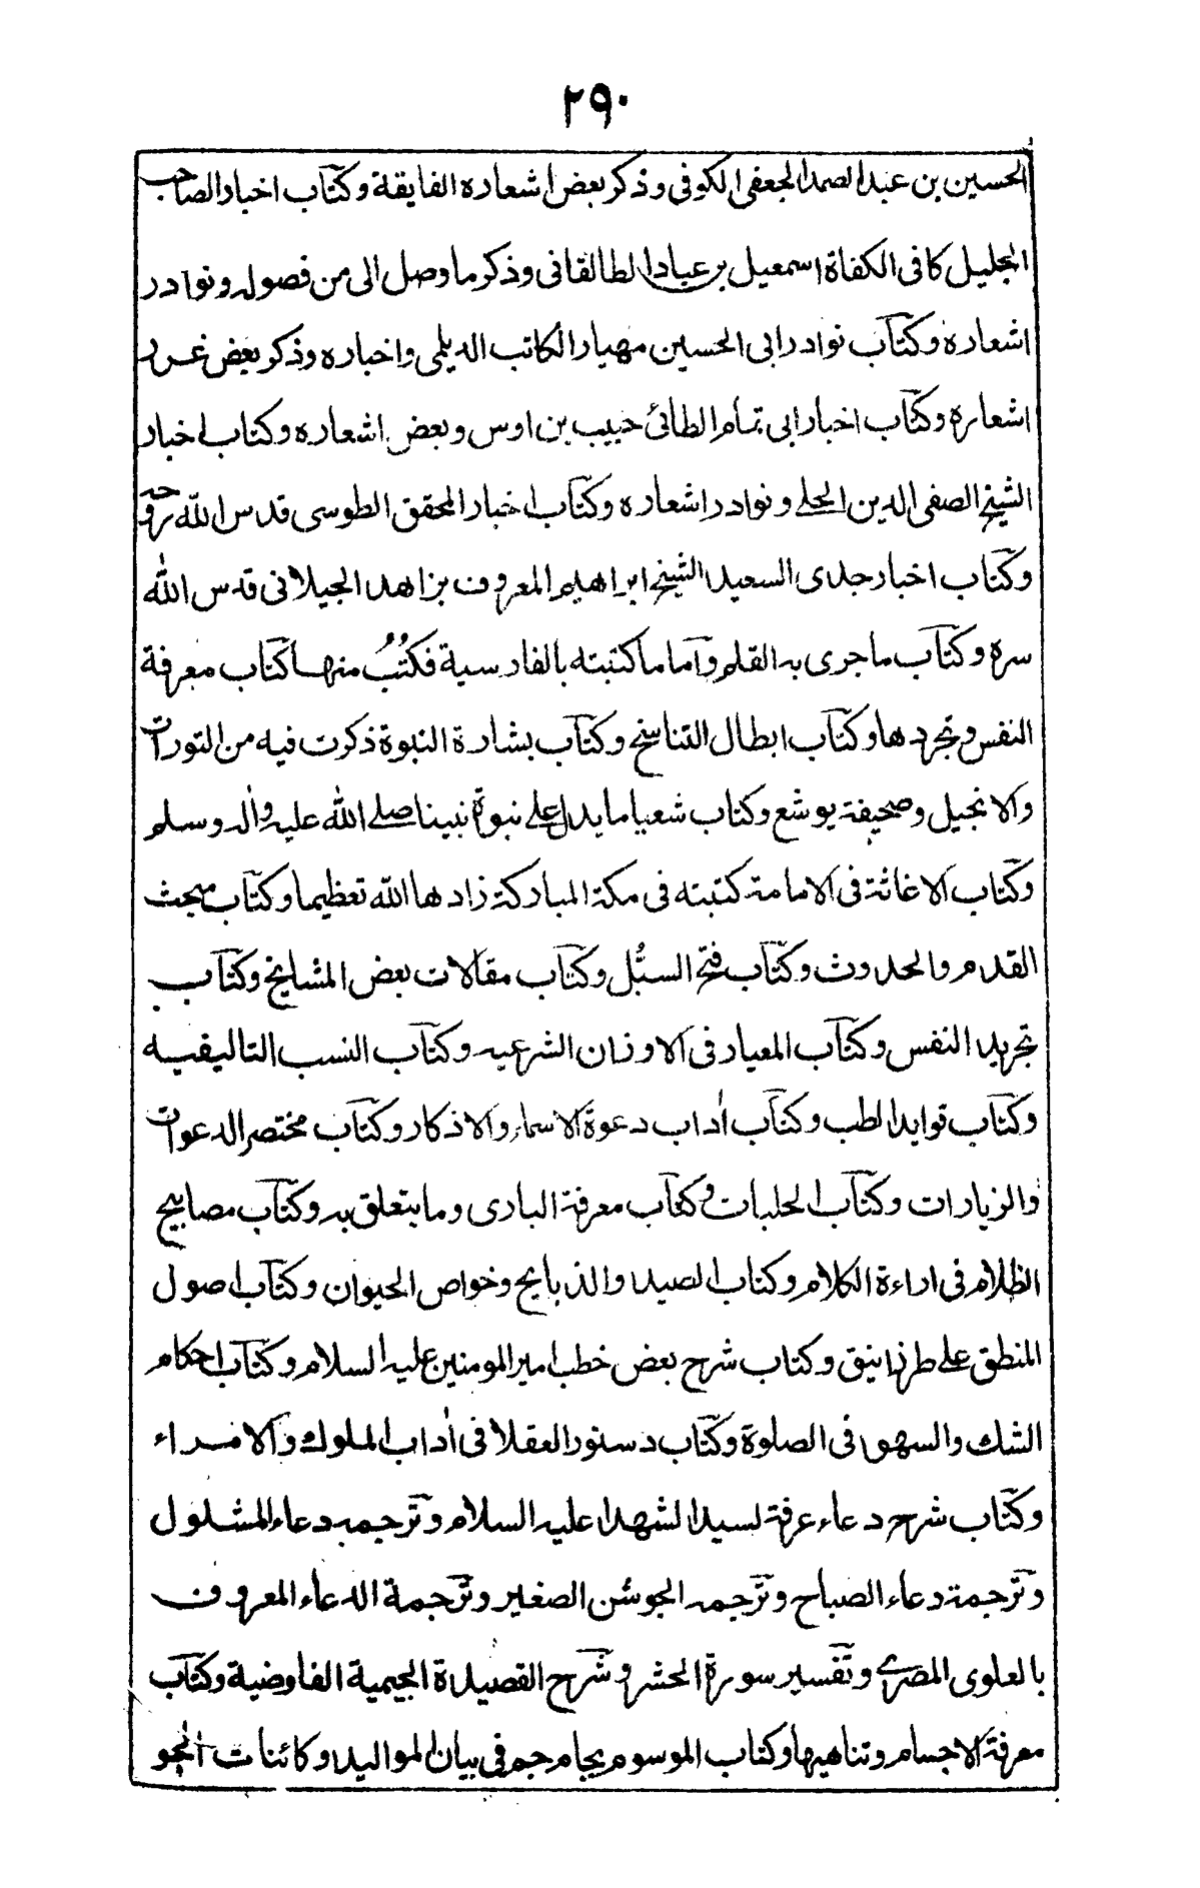 ٢٩٠
الحسين بن عبد الصمد الجعفى الكوفى وذكر بعض اشعاره الفايقة وكتاب اخبار الصاحب
الجليل كافى الكفاة اسمعيل بن عباد الطالقانى وذكر ما وصل الى من فصوله ونوادر
اشعاره وكتاب نوادر ابى الحسين مهيار الكاتب الديلمى واخباره وذكر بعض غرر
اشعاره وكتاب اخبار ابى تمام الطائى حبيب بن اوس وبعض اشعاره وكتاب اخبار
الشيخ الصفى الدين الحلى ونوادر اشعاره وكتاب اخبار المحقق الطوسى قدس الله روحه
وكتاب اخبار جدى السعيد الشيخ ابراهيم المعروف بزاهد الجيلانى قدس الله
سره وكتاب ما جرى به القلم وآما ما كتبته بالفارسية فكتُبُ منها كتاب معرفة
النفس وتجردها وكتاب ابطال التناسخ وكتاب بشارة النبوة ذكرت فيه من التورات
والانجيل وصحيفة يوشع وكتاب شعيا ما يدل على نبوة نبينا صلى الله عليه واٰله وسلم
وكتاب الاغاثة فى الامامة كتبته فى مكة المباركة زادها الله تعظيما وكتاب مبحث
القدم والحدوث وكتاب فتح السبُل وكتاب مقالات بعض المشايخ وكتاب
تجريد النفس وكتاب المعيار فى الاوزان الشرعيه وكتاب النسب التاليفيه
وكتاب قوايد الطب وكتاب اٰداب دعوة الاسماء والاذكار وكتاب مختصر الدعوات
والزيارات وكتاب الحلبات وكتاب معرفة البارى وما يتعلق به وكتاب مصابيح
الظلام فى اراءة الكلام وكتاب الصيد والذبايح وخواص الحيوان وكتاب اصول
المنطق على طرز انيق وكتاب شرح بعض خطب امير المومنين عليه السلام وكتاب احكام
الشك والسهو فى الصلوة وكتاب دستور العقلا فى اٰداب الملوك والامراء
وكتاب شرح دعاء عرفة لسيد الشهدا عليه السلام وترجمه دعاء المشلول
وترجمة دعاء الصباح وترجمه الجوشن الصغير وترجمة الدعاء المعروف
بالعلوى المصرى وتفسير سورة الحشر وشرح القصيدة الجيمية الفاوضية وكتاب
معرفة الاجسام وتناهيها وكتاب الموسوم بجام جم فى بيان المواليد وكائنات الجو